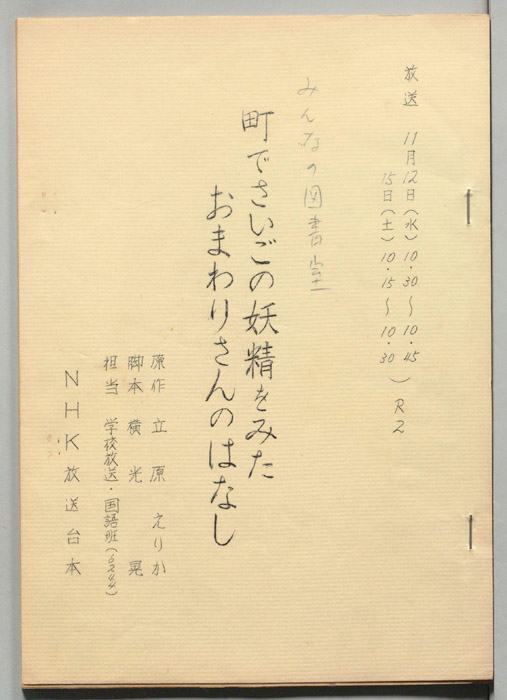 放送 11月12日(水)10・30〜10・45
15日(土)10・15〜10・30) R2
みんなの図書室
町でさいごの妖精をみた
おまわりさんのはなし
原作 立原 えりか
脚本 横光 晃
担当 学校放送・国語班(6244)
NHK放送台本